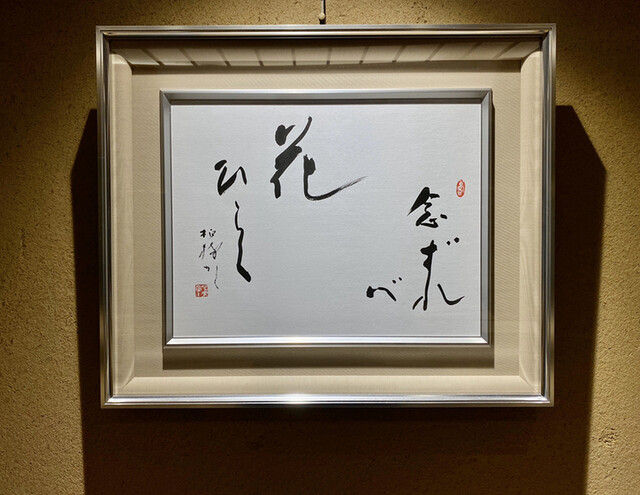 念ずれ
ば
花
ひらく